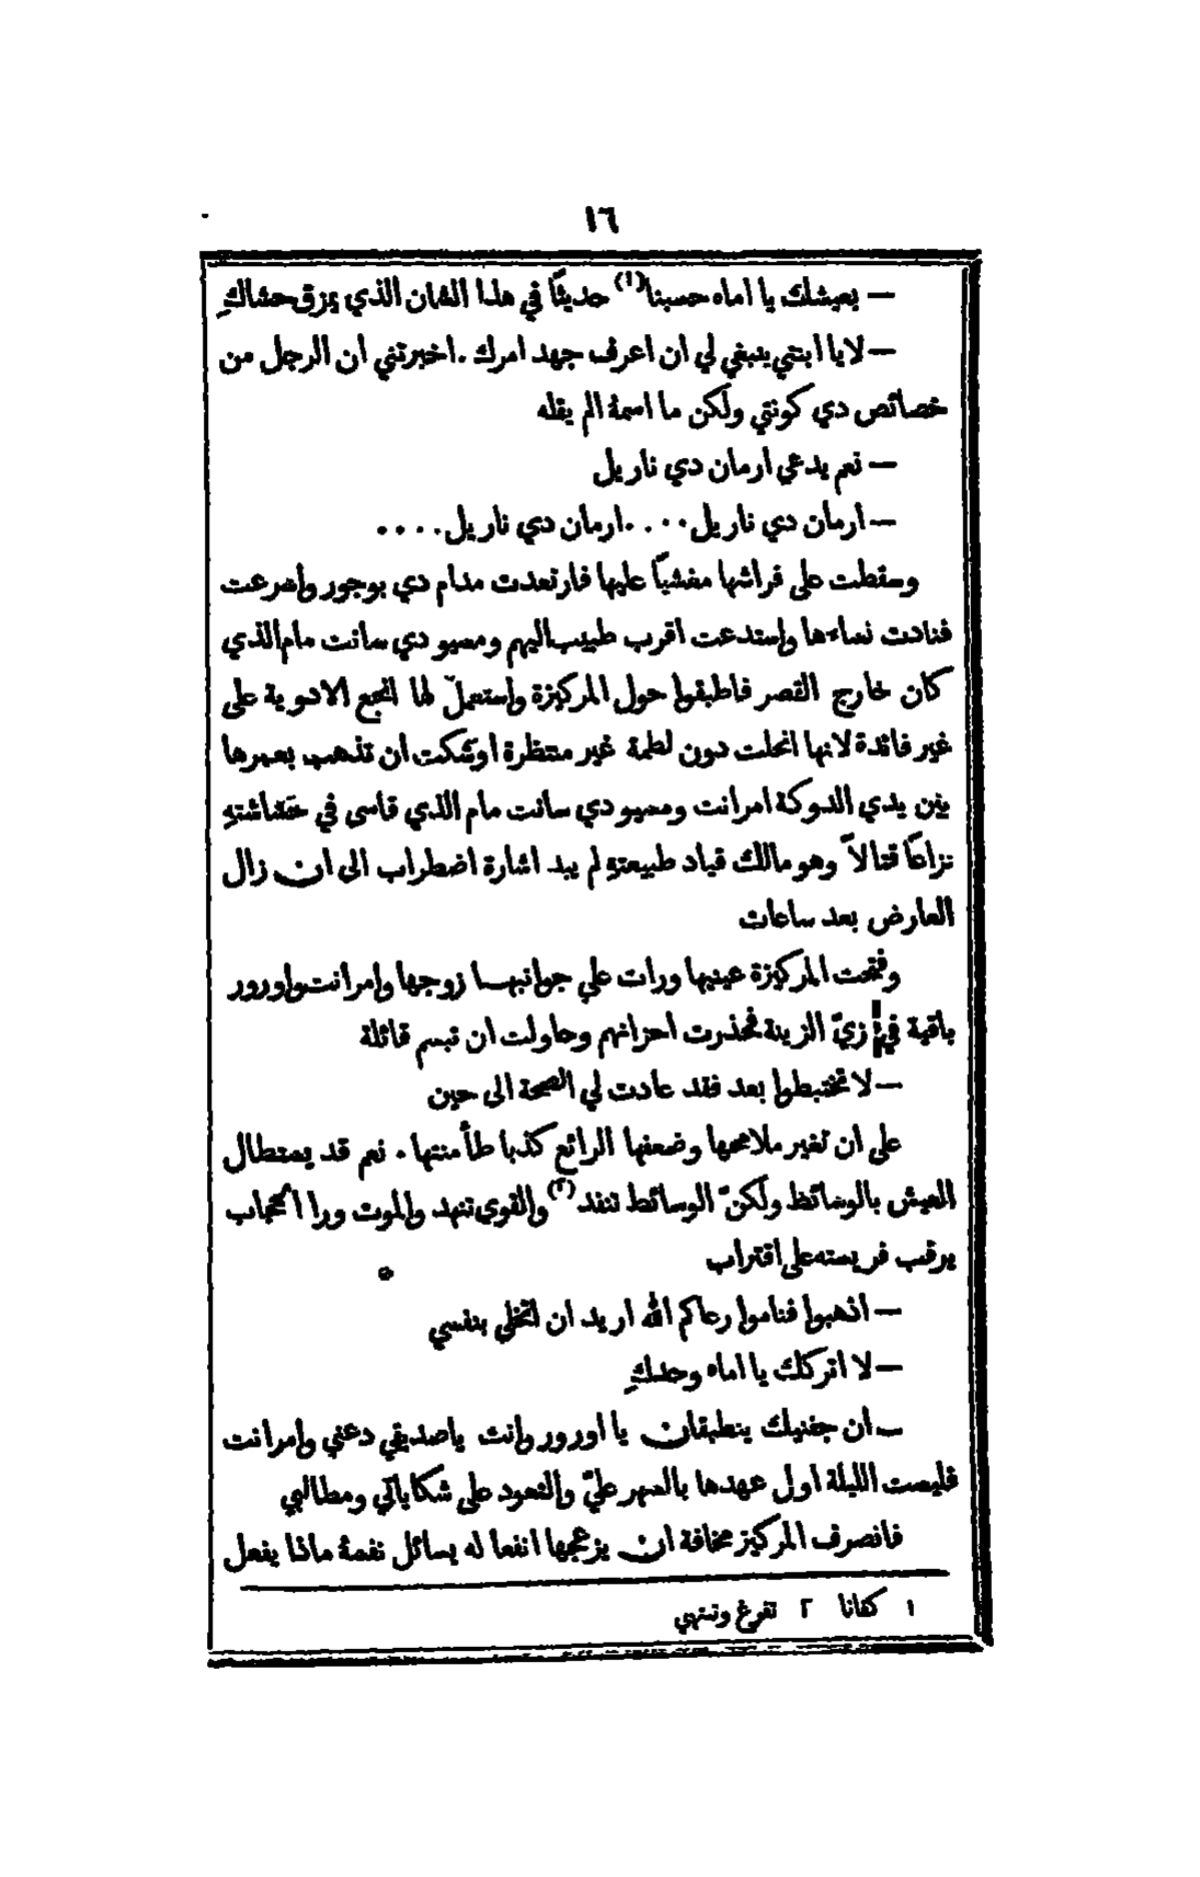 ١٦
— بعيشك يا اماه حسبنا(١) حديثًا في هذا الشان الذي يمزق حشاكِ
— لا يا ابنتي ينبغي لي ان اعرف جهد امرك . اخبرتني ان الرجل من
خصائص دي كونتي ولكن ما اسمهُ الم يقله
— نعم يدعي ارمان دي ناريل
— ارمان دي ناريل . . . . ارمان دي ناريل . . . .
وسقطت على فراشها مغشيًا عليها فارتعدت مدام دي بوجور واسرعت
فنادت نساءها واستدعت اقرب طبيب اليهم ومسيو دي سانت مام الذي
كان خارج القصر فاطبقوا حول المركيزة واستعملّ لها انجع الادوية على
غير فائدة لانها انحلت دون لطمة غير منتظرة اوشكت ان تذهب بعمرها
بين يدي الدوكة امرانت ومسيو دي سانت مام الذي قاسى في حشاشتهِ
نزاعًا قتالاً وهو مالك قياد طبيعتهِ لم يبد اشارة اضطراب الى ان زال
العارض بعد ساعات
وفتحت المركيزة عينيها ورات علي جوانبها زوجها وامرانت واورور
باقية في زيّ الزينة فحذرت احزانهم وحاولت ان تبسم قائلة
— لا تختبطوا بعد فقد عادت لي الصحة الى حين
على ان تغير ملامحها وضعفها الرائع كذبا طأمنتها . نعم قد يستطال
العيش بالوسائط ولكنّ الوسائط تنفد(٢) والقوي تنهد والموت ورا الحجاب
يرقب فريسته على اقتراب
— اذهبوا فناموا رعاكم الله اريد ان اتخلي بنفسي
— لا اتركك يا اماه وحدكِ
— ان جفنيك ينطبقان يا اورور وانت ياصديقي دعني وامرانت
فليست الليلة اول عهدها بالسهر عليّ والتعود على شكاياتي ومطالبي
فانصرف المركيز مخافة ان يزعجها انفعا له يسائل نفسهُ ماذا يفعل
١ كفانا ٢ تفرغ وتنتهي